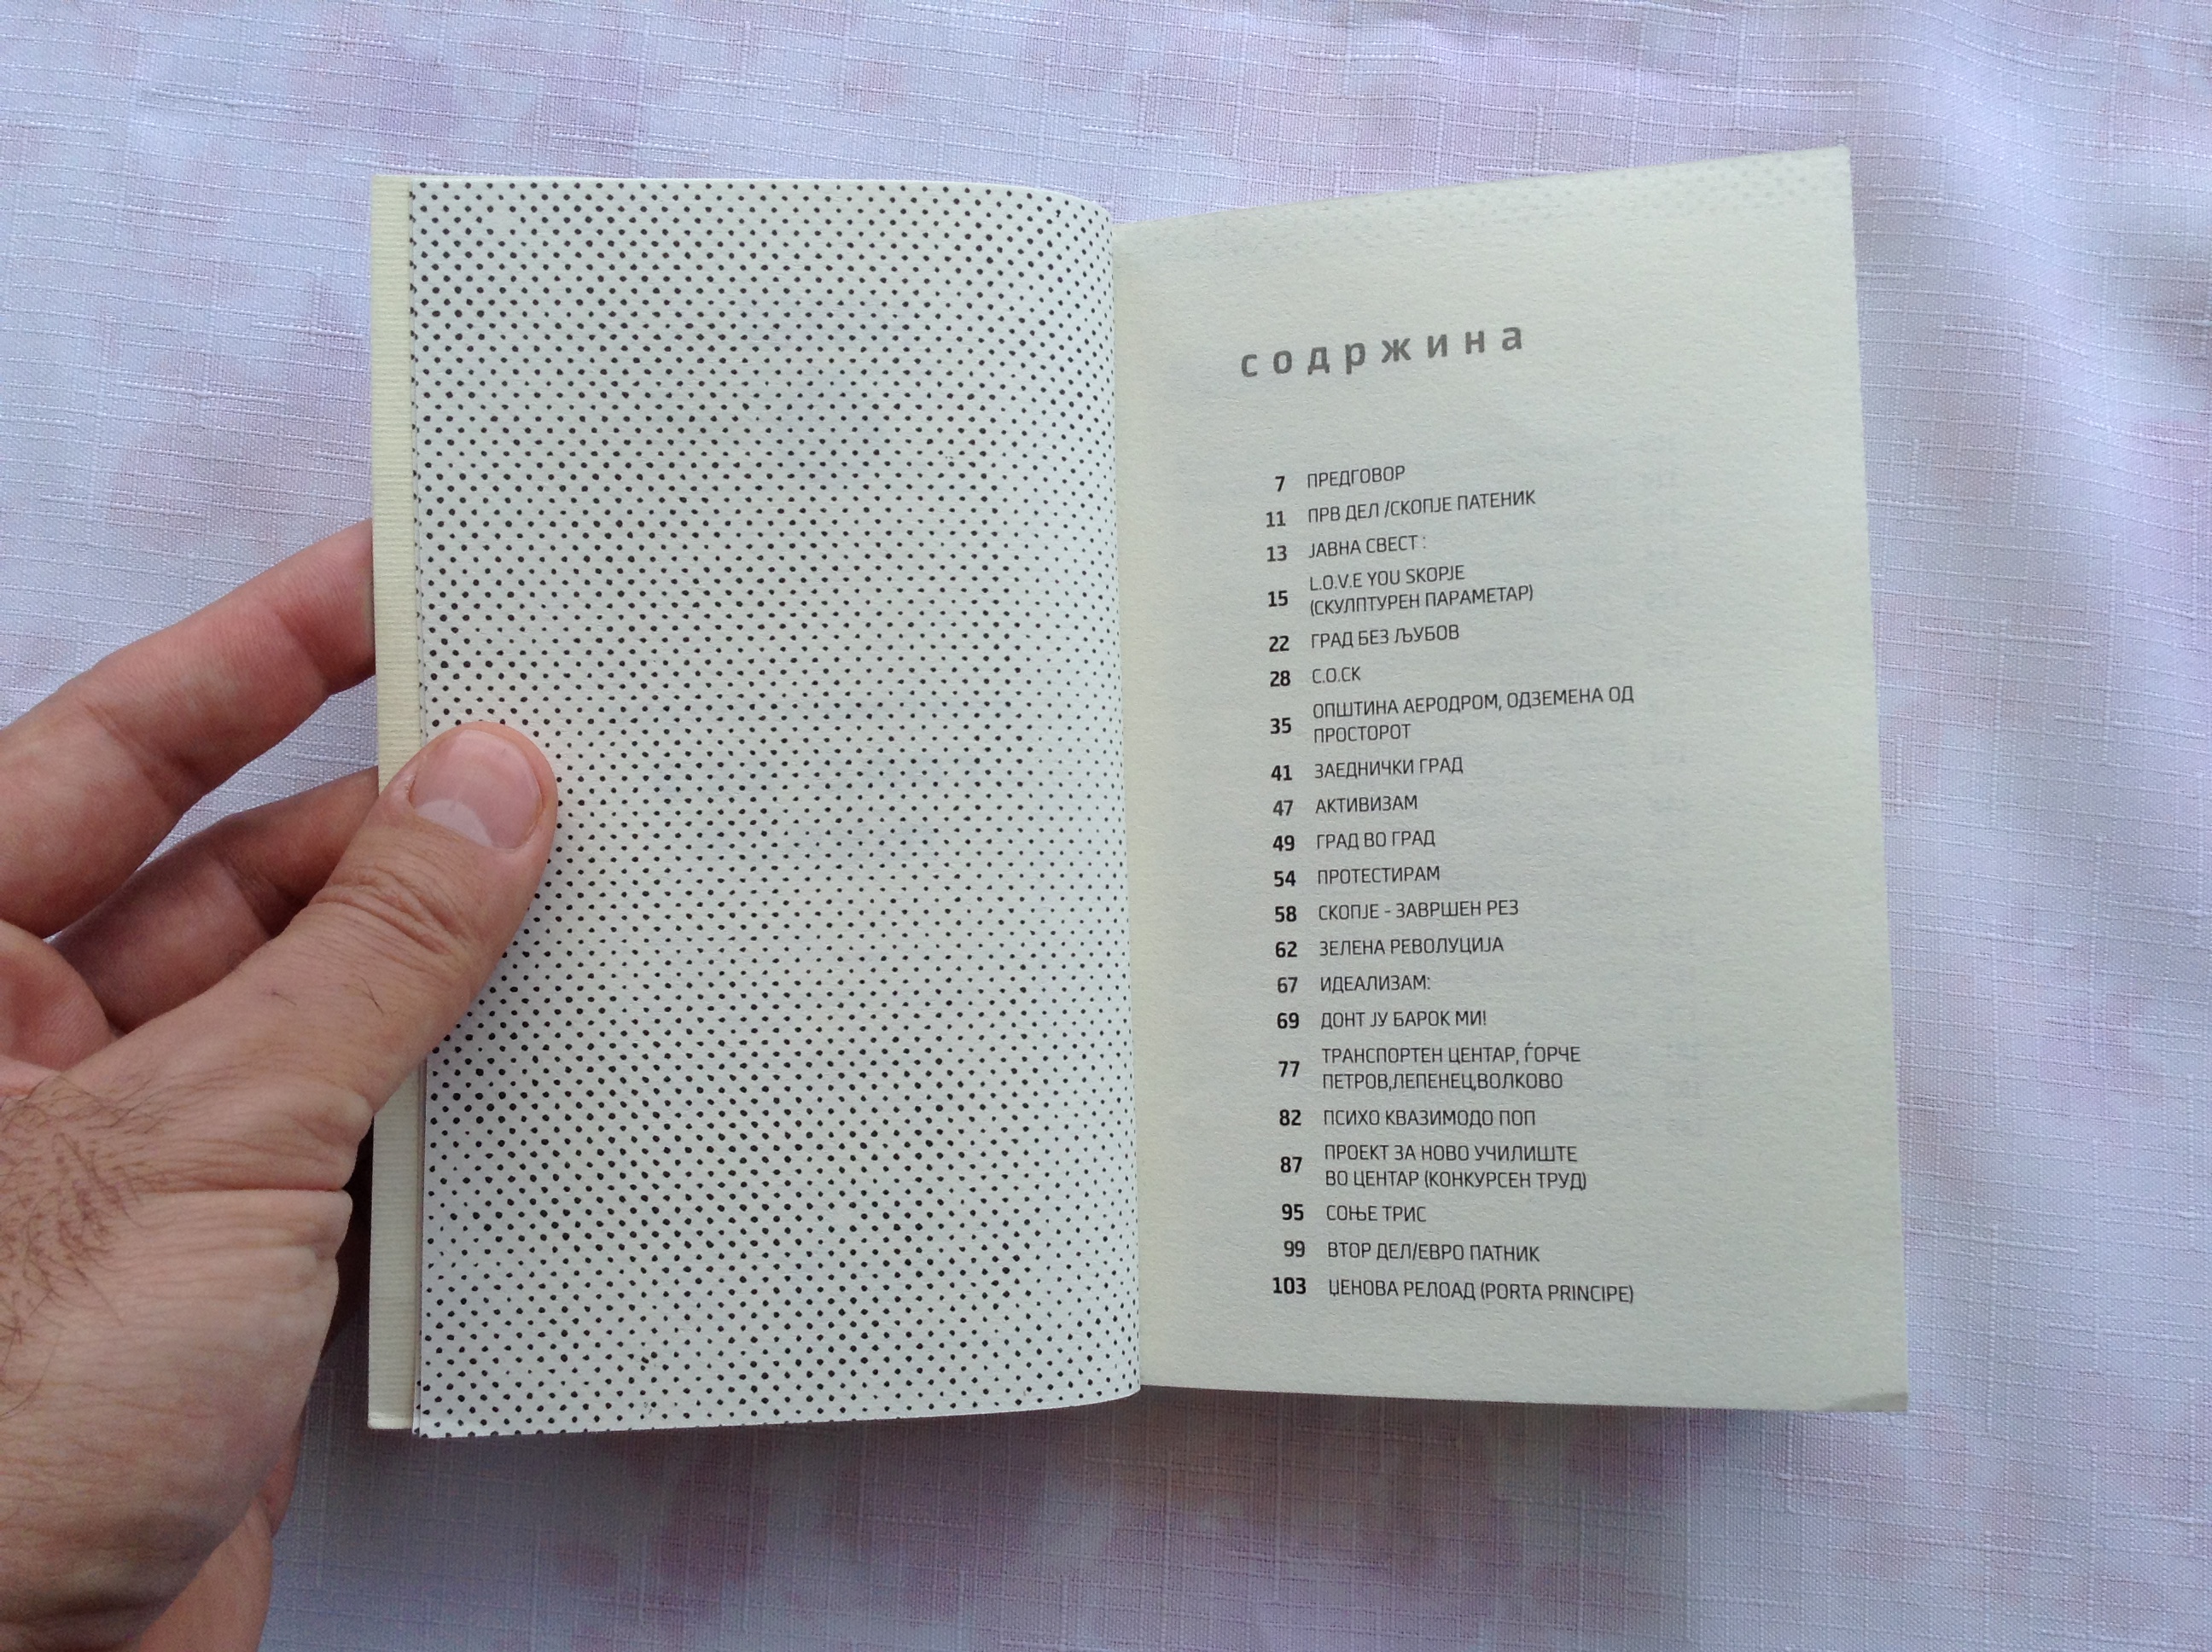 содржина
7 ПРЕДГОВОР
11 ПРВ ДЕЛ /СКОПЈЕ ПАТЕНИК
13 ЈАВНА СВЕСТ :
15 L.O.V.E YOU SKOPJE
(СКУЛПТУРЕН ПАРАМЕТАР)
22 ГРАД БЕЗ ЉУБОВ
28 С.О.СК
35 ОПШТИНА АЕРОДРОМ, ОДЗЕМЕНА ОД
ПРОСТОРОТ
41 ЗАЕДНИЧКИ ГРАД
47 АКТИВИЗАМ
49 ГРАД ВО ГРАД
54 ПРОТЕСТИРАМ
58 СКОПЈЕ - ЗАВРШЕН РЕЗ
62 ЗЕЛЕНА РЕВОЛУЦИЈА
67 ИДЕАЛИЗАМ:
69 ДОНТ ЈУ БАРОК МИ!
77 ТРАНСПОРТЕН ЦЕНТАР, ЃОРЧЕ
ПЕТРОВ,ЛЕПЕНЕЦ,ВОЛКОВО
82 ПСИХО КВАЗИМОДО ПОП
87 ПРОЕКТ ЗА НОВО УЧИЛИШТЕ
ВО ЦЕНТАР (КОНКУРСЕН ТРУД)
95 СОЊЕ ТРИС
99 ВТОР ДЕЛ/ЕВРО ПАТНИК
103 ЏЕНОВА РЕЛОАД (PORTA PRINCIPE)